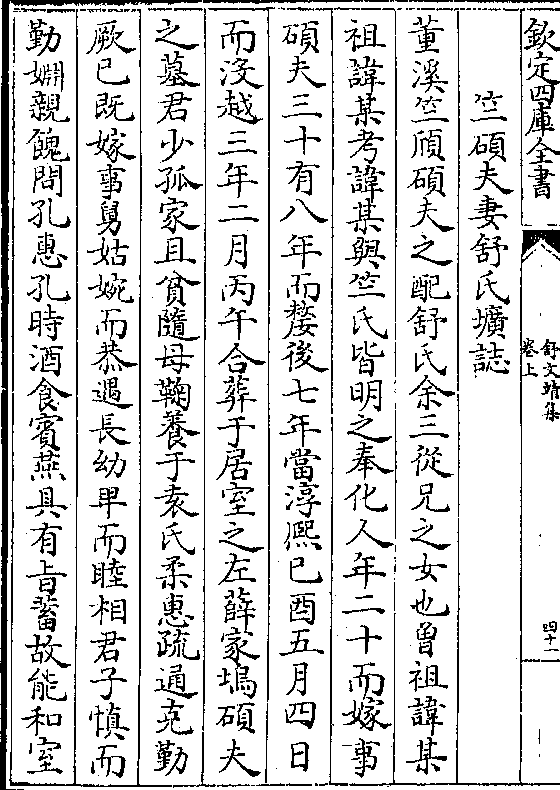 欽定四庫全書
舒文靖集
卷上
四十一
竺碩夫妻舒氏壙誌
董溪竺頎碩夫之配舒氏余三從兄之女也曾祖諱某
祖諱某考諱某與竺氏皆明之奉化人年二十而嫁事
碩夫三十有八年而嫠後七年當淳熈已酉五月四日
而没越三年二月丙午合葬于居室之左薛家塢碩夫
之墓君少孤家且貧隨母鞠養于袁氏柔惠疏通克勤
厥已既嫁事舅姑婉而恭遇長幼卑而睦相君子慎而
勤婣親餽問孔惠孔時酒食賓燕具有㫖蓄故能和室